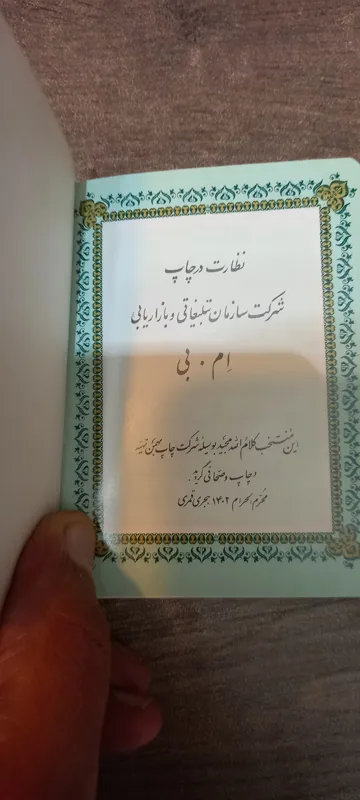 نظارت در چاپ
شرکت سازمان تبلیغاتی و بازاریابی
اِم . بی
این منتخب کلام الله مجید بوسیله شرکت چاپ بهمن تهیه
و چاپ و صحافی گردید.
محرم الحرام ۱۴۰۲ هجری قمری